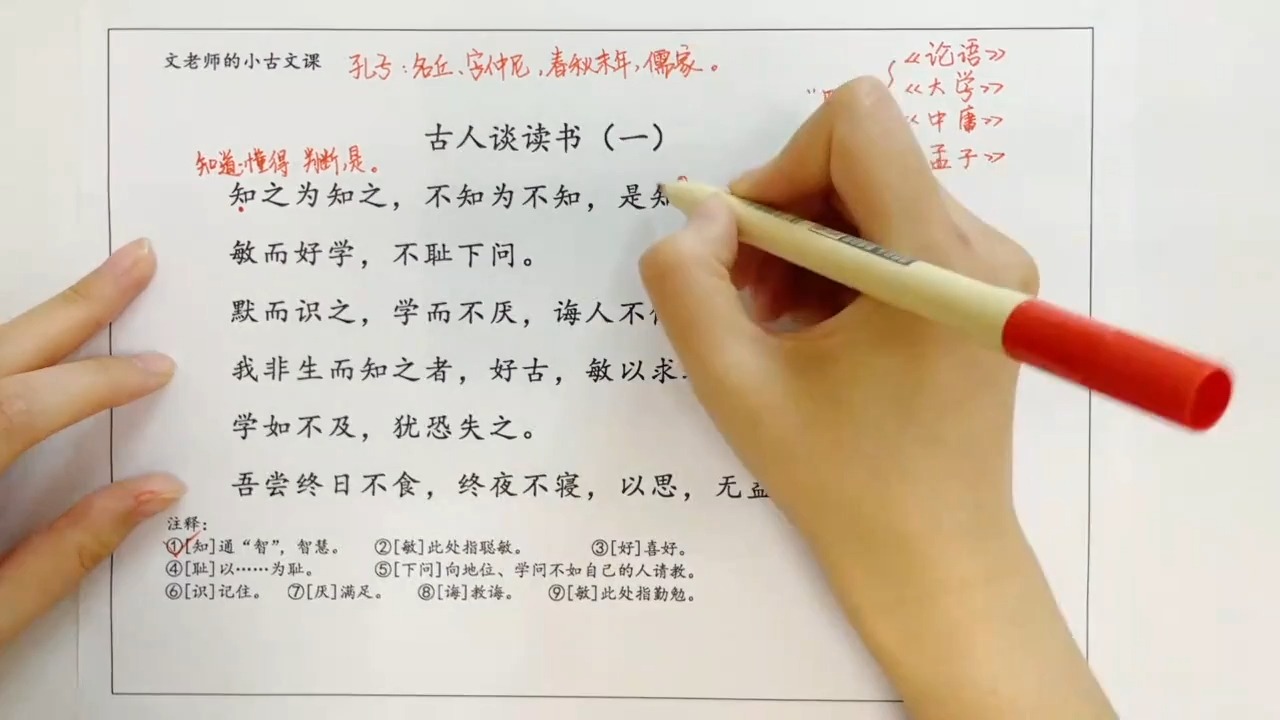 文老师的小古文课
孔子:名丘、字仲尼,春秋末年,儒家。
《论语》
《大学》
《中庸》
孟子》
古人谈读书（一）
知道:懂得 判断,是。
知之为知之，不知为不知，是知
敏而好学，不耻下问。
默而识之，学而不厌，诲人不
我非生而知之者，好古，敏以求
学如不及，犹恐失之。
吾尝终日不食，终夜不寝，以思，无
注释：
①[知]通“智”，智慧。 ②[敏]此处指聪敏。 ③[好]喜好。
④[耻]以……为耻。 ⑤[下问]向地位、学问不如自己的人请教。
⑥[识]记住。 ⑦[厌]满足。 ⑧[诲]教诲。 ⑨[敏]此处指勤勉。